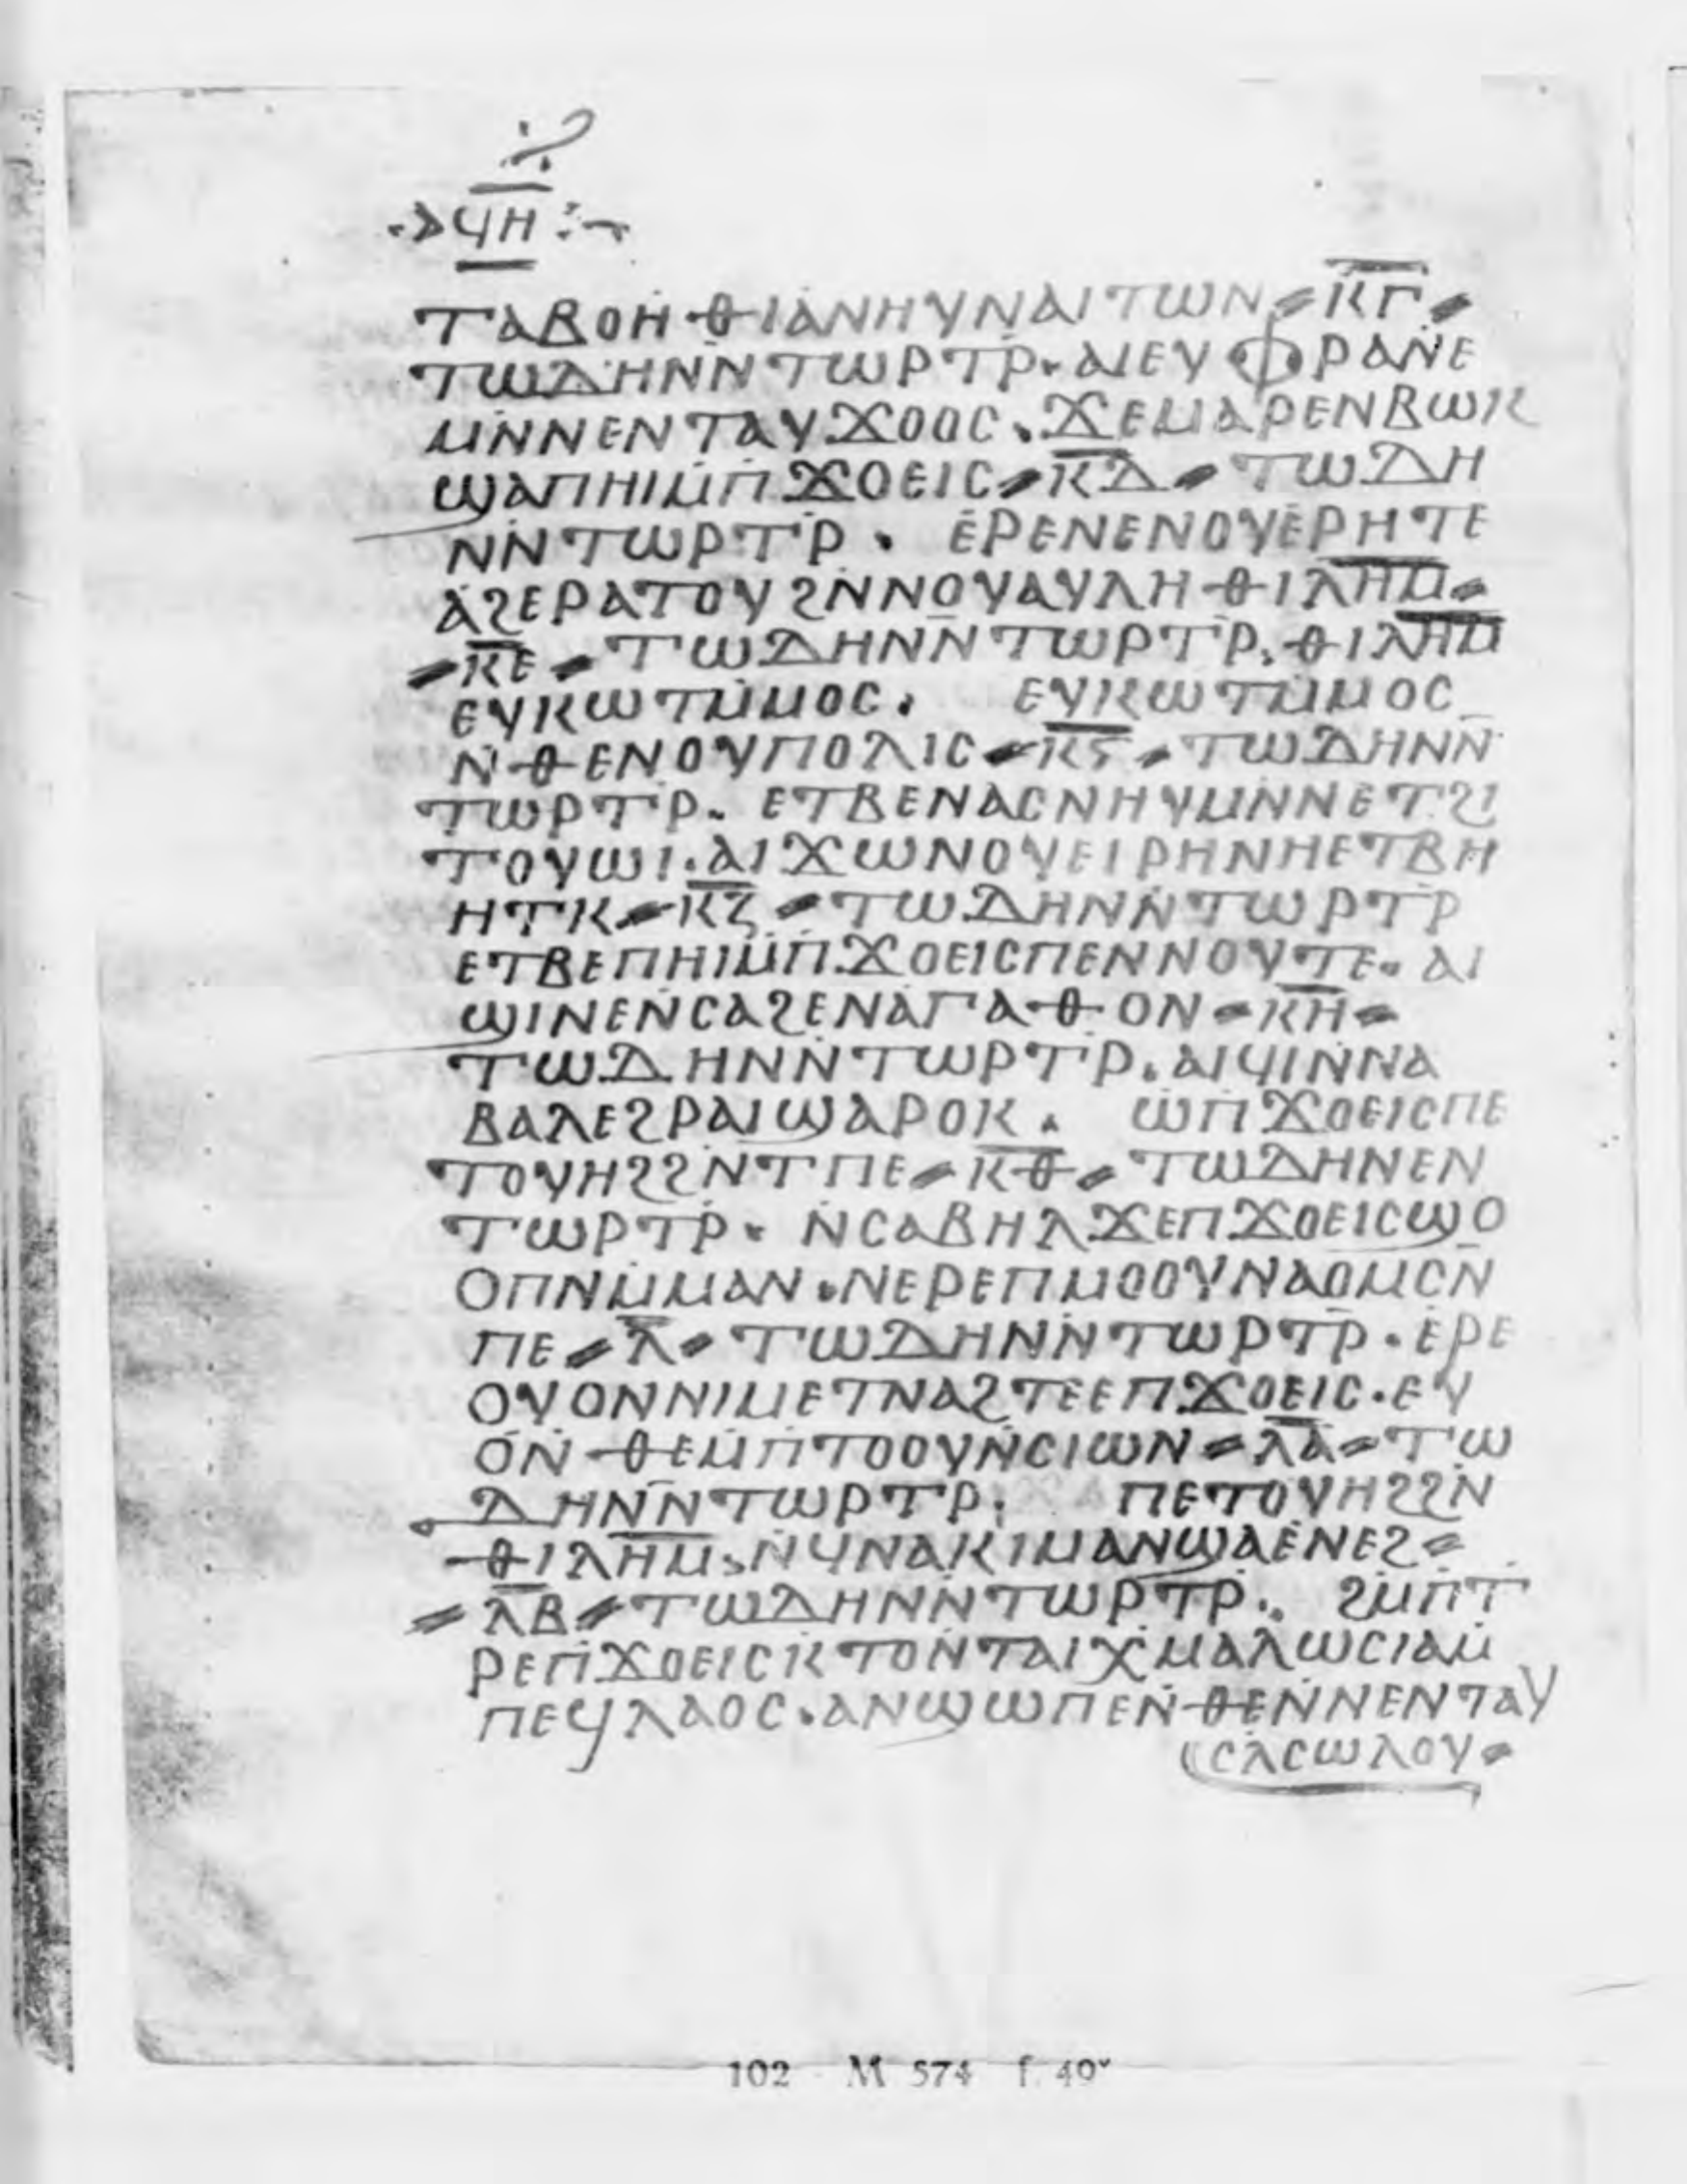 ϥⲏ
ⲧⲁⲃⲟⲏⲑⲓⲁⲛⲏⲩⲛⲁⲓⲧⲱⲛ ⲕ̅ⲅ̅
ⲧⲱⲇⲏⲛⲛ̇ⲧⲱⲣⲧⲣ̇· ⲁⲓⲉⲩⲫⲣⲁⲛⲉ
ⲙⲛ̇ⲛⲉⲛⲧⲁⲩϫⲟⲟⲥ· ϫⲉⲙⲁⲣⲉⲛⲃⲱⲕ
ϣⲁⲡⲏⲓⲙ̇ⲡ̇ϫⲟⲉⲓⲥ ⲕ̅ⲇ̅ ⲧⲱⲇⲏ
ⲛⲛ̇ⲧⲱⲣⲧⲣ̇· ⲉ̇ⲣⲉⲛⲉⲛⲟⲩⲉ̇ⲣⲏⲧⲉ
ⲁ̇ϩⲉⲣⲁⲧⲟⲩϩⲛ̇ⲛⲟⲩⲁⲩⲗⲏⲑⲓⲗ̅ⲏ̅ⲙ̅
ⲕ̅ⲉ̅ ⲧⲱⲇⲏⲛⲛ̇ⲧⲱⲣⲧⲣ̇· ⲑⲓⲗ̅ⲏ̅ⲙ̅
ⲉⲩⲕⲱⲧⲙ̇ⲙⲟⲥ· ⲉⲩⲕⲱⲧⲙ̇ⲙⲟⲥ
ⲛ̇ⲑⲉⲛⲟⲩⲡⲟⲗⲓⲥ ⲕ̅ⲋ̅ ⲧⲱⲇⲏⲛⲛ̇
ⲧⲱⲣⲧⲣ̇· ⲉⲧⲃⲉⲛⲁⲥⲛⲏⲩⲙⲛ̇ⲛⲉⲧϩⲓ
ⲧⲟⲩⲱⲓ· ⲁⲓϫⲱⲛⲟⲩⲉⲓⲣⲏⲛⲏⲉⲧⲃⲏ
ⲏⲧⲕ ⲕ̅ⲍ̅ ⲧⲱⲇⲏⲛⲛ̇ⲧⲱⲣⲧⲣ̇
ⲉⲧⲃⲉⲡⲏⲓⲙ̇ⲡ̇ϫⲟⲉⲓⲥⲡⲉⲛⲛⲟⲩⲧⲉ· ⲁⲓ
ϣⲓⲛⲉⲛ̇ⲥⲁϩⲉⲛⲁⲅⲁⲑⲟⲛ ⲕ̅ⲏ̅
ⲧⲱⲇⲏⲛⲛ̇ⲧⲱⲣⲧⲣ̇· ⲁⲓϥⲓⲛ̇ⲛⲁ
ⲃⲁⲗⲉϩⲣⲁⲓϣⲁⲣⲟⲕ· ⲱ̇ⲡ̇ϫⲟⲉⲓⲥⲡⲉ
ⲧⲟⲩⲏϩϩⲛ̇ⲧⲡⲉ ⲕ̅ⲑ̅ ⲧⲱⲇⲏⲛⲉⲛ
ⲧⲱⲣⲧⲣ̇· ⲛ̇ⲥⲁⲃⲏⲗϫⲉⲡ̇ϫⲟⲉⲓⲥϣⲟ
ⲟⲡⲛⲙ̇ⲙⲁⲛ· ⲛⲉⲣⲉⲡⲙⲟⲟⲩⲛⲁⲟⲙⲥⲛ̇
ⲡⲉ ⲗ̅ ⲧⲱⲇⲏⲛⲛ̇ⲧⲱⲣⲧⲣ̇· ⲉ̇ⲣⲉ
ⲟⲩⲟⲛⲛⲓⲙⲉⲧⲛⲁϩⲧⲉⲉⲡ̇ϫⲟⲉⲓⲥ· ⲉⲩ
ⲟ̇ⲛ̇ⲑⲉⲙ̇ⲡ̇ⲧⲟⲟⲩⲛ̇ⲥⲓⲱⲛ ⲗ̅ⲁ̅ ⲧⲱ
ⲇⲏⲛⲛ̇ⲧⲱⲣⲧⲣ̇· ⲡⲉⲧⲟⲩⲏϩϩⲛ̇
ⲑⲓⲗ̅ⲏ̅ⲙ̅· ⲛ̇ϥⲛⲁⲕⲓⲙⲁⲛϣⲁⲉ̇ⲛⲉϩ
ⲗ̅ⲃ̅ ⲧⲱⲇⲏⲛⲛ̇ⲧⲱⲣⲧⲣ̇· ϩⲙ̇ⲡ̇ⲧ
ⲣⲉⲡ̇ϫⲟⲉⲓⲥⲕⲧⲟⲛ̇ⲧⲁⲓⲭⲙⲁⲗⲱⲥⲓⲁⲙ̇
ⲡⲉϥⲗⲁⲟⲥ· ⲁⲛϣⲱⲡⲉⲛ̇ⲑⲉⲛ̇ⲛⲉⲛⲧⲁⲩ
ⲥⲗⲥⲱⲗⲟⲩ
102 M 574 f. 49ᵛ